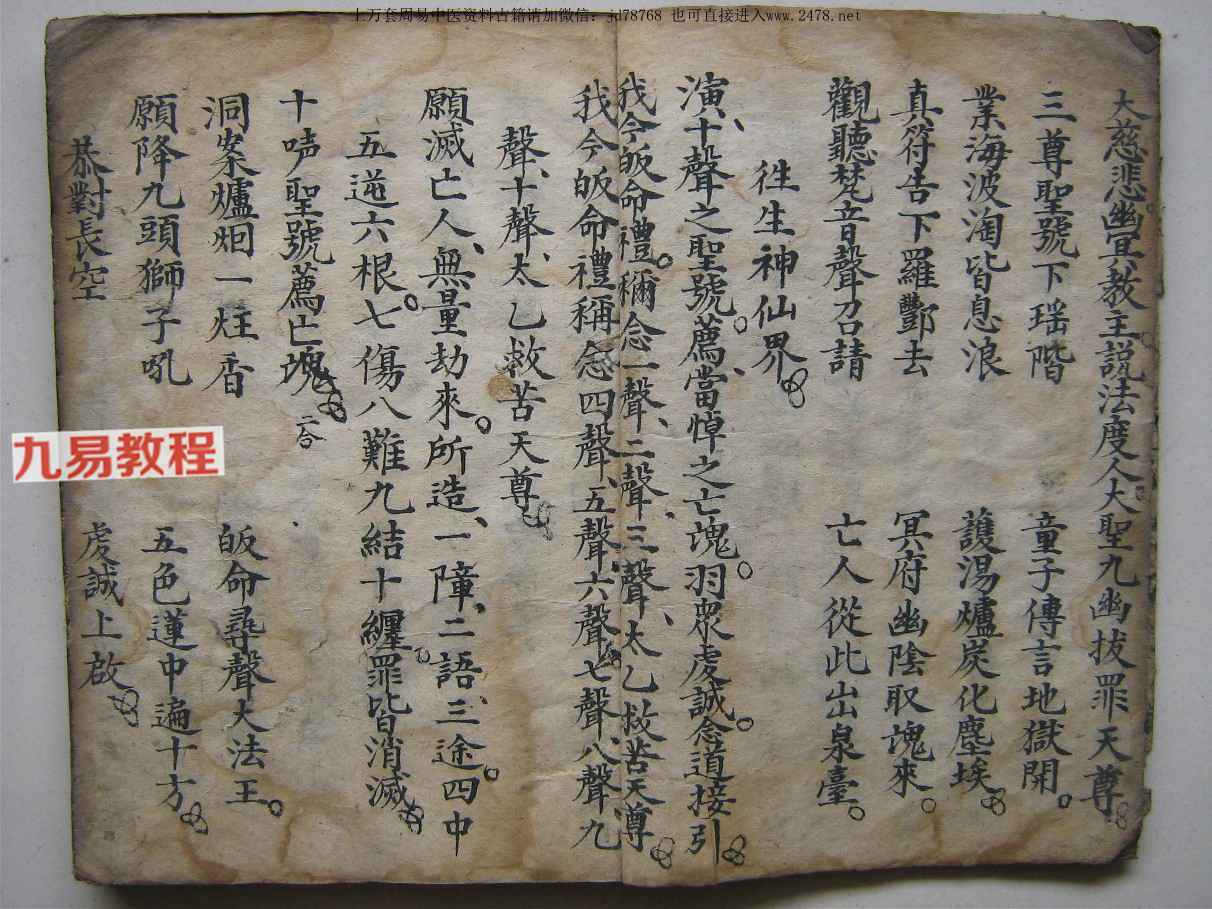 上万套周易中医资料古籍请加微信：jd78768 也可直接进入www.2478.net
大慈悲幽冥教主説法度人大聖九幽拔罪天尊
三尊聖號下瑶階 童子傳言地獄開
業海波淘皆息浪 護湯爐炭化塵埃
真符告下羅酆去 冥府幽陰取魂來
觀聽梵音聲召請 亡人從此出泉臺
徃生神仙界
演十聲之聖號薦當悼之亡魂羽衆虔誠念道接引
我今皈命禮稱念一聲二聲三聲太乙救苦天尊
我今皈命禮稱念四聲五聲六聲七聲八聲九
聲十聲太乙救苦天尊
願滅亡人無量劫來所造一障二語三途四中
五逆六根七傷八難九結十纏罪皆消滅
十声聖號薦亡魂 二合
洞案爐烟一炷香 皈命尋聲大法王
願降九頭獅子吼 五色蓮中遍十方
恭對長空 虔誠上啟
九易教程